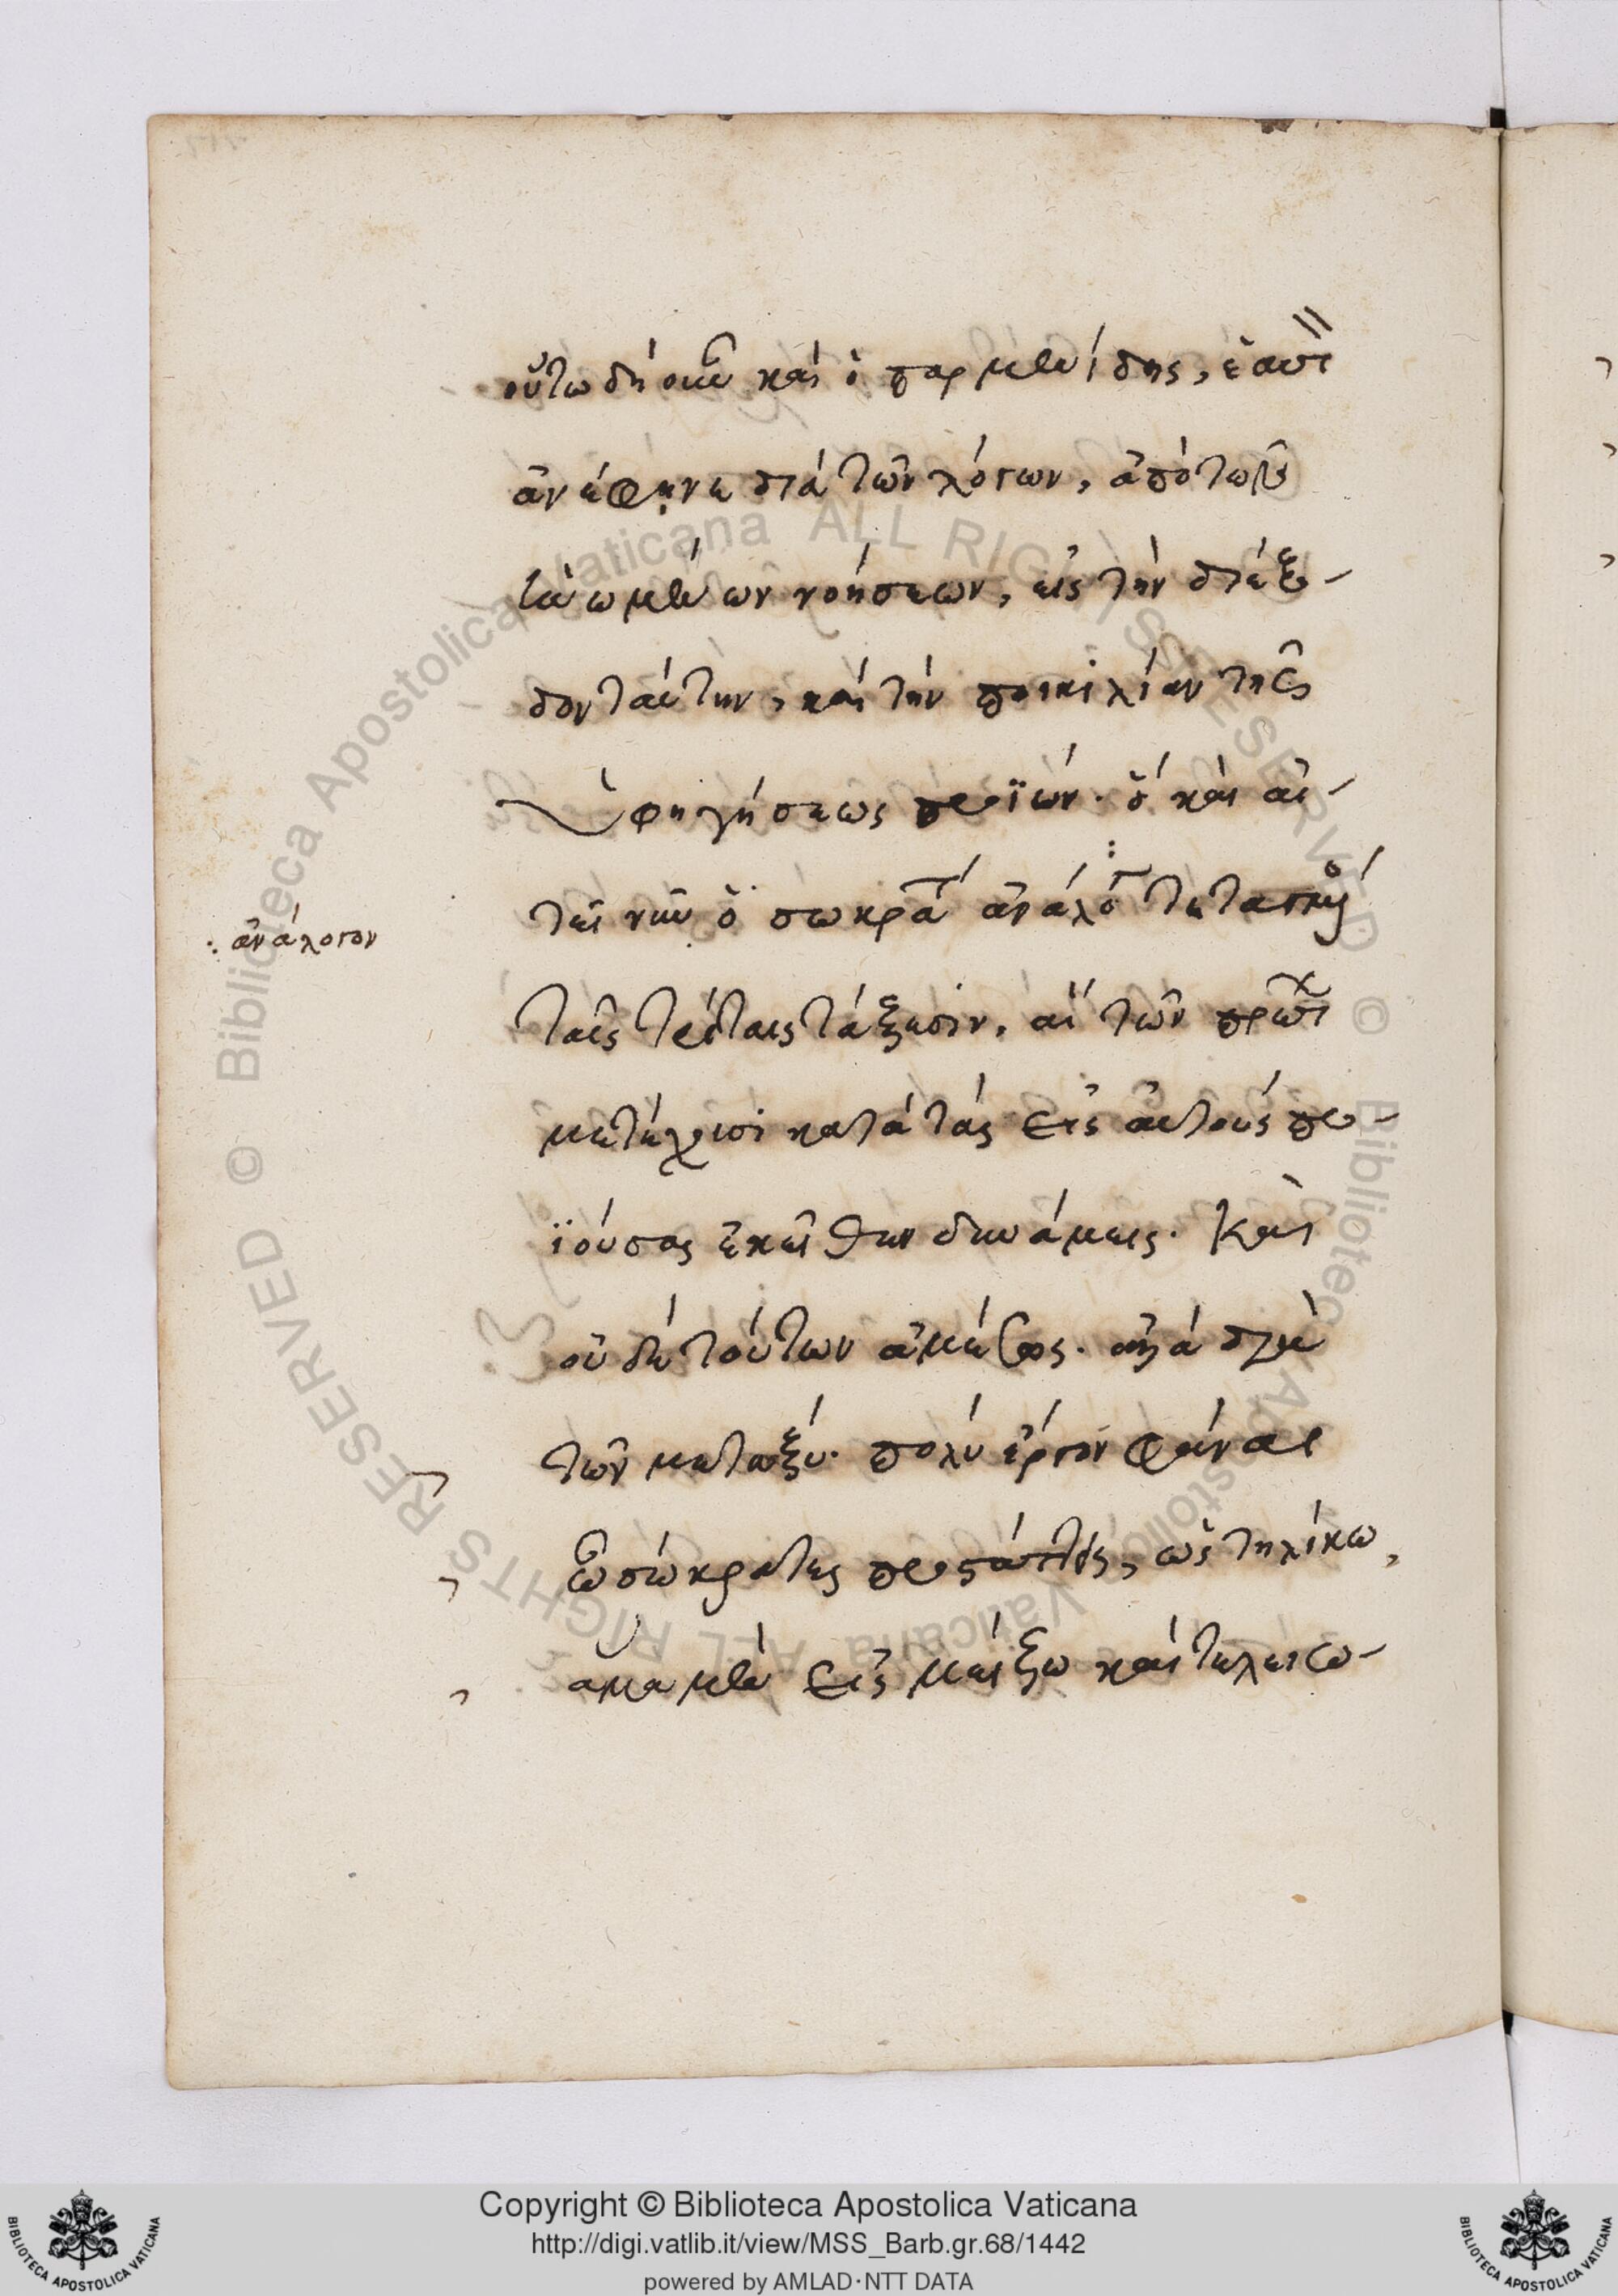 οὕτω δὴ οὖν καὶ ὁ παρμενίδης, ἑαυτὸν
ἀνέφηνε διὰ τῶν λόγων, ἀπὸ τῶν
ἑνωμένων νοήσεων, εἰς τὴν διέξ-
δον ταύτην, καὶ τὴν ποικιλίαν τῆς
ὑφηγήσεως προϊών. ὃ καὶ αἰ-
τεῖ νῦν ὁ σωκράτης ἀνάλογ τεταγμένος
: ἀνάλογον
ταῖς τρίταις τάξεσιν, αἳ τῶν πρώτων
μετέχουσι κατὰ τὰς εἰς αὐτοὺς προ-
ϊούσας ἐκεῖθεν δυνάμεις. Καὶ
οὐδὲ τούτων ἀμέσως. ἀλλὰ διὰ
τῶν μεταξύ. πολὺ ἔργον φάναι
ὦ σώκρατες προστάττεις, ὡς τηλικῷ,
ἅμα μὲν εἰς μείζω καὶ τελειο-
Copyright © Biblioteca Apostolica Vaticana
http://digi.vatlib.it/view/MSS_Barb.gr.68/1442
powered by AMLAD·NTT DATA
BIBLIOTECA APOSTOLICA VATICANA
BIBLIOTECA APOSTOLICA VATICANA
© Biblioteca Apostolica Vaticana ALL RIGHTS RESERVED
© Biblioteca Apostolica Vaticana ALL RIGHTS RESERVED